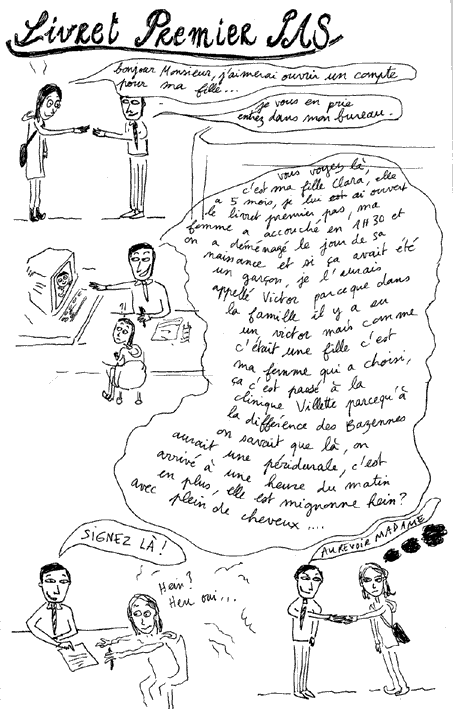 Livret Premier PAS
bonjour Monsieur, j'aimerai ouvrir un compte
pour ma fille...
je vous en prie
entrez dans mon bureau.
vous voyez là,
c'est ma fille Clara, elle
a 5 mois, je lui est ai ouvert
le livret premier pas, ma
femme a accouché en 1H30 et
on a déménagé le jour de sa
naissance et si ça avait été
un garçon, je l'aurais
appellé Victor parceque dans
la famille il y a eu
un victor mais comme
c'était une fille c'est
ma femme qui a choisi,
ça c'est passé à la
clinique Villette parcequ'à
la différence des Bazennes
on savait que là, on
aurait une péridurale, c'est
arrivé à une heure du matin
en plus, elle est mignonne hein?
avec plein de cheveux....
SIGNEZ LÀ!
Hein?
Heu oui...
AUREVOIR MADAME